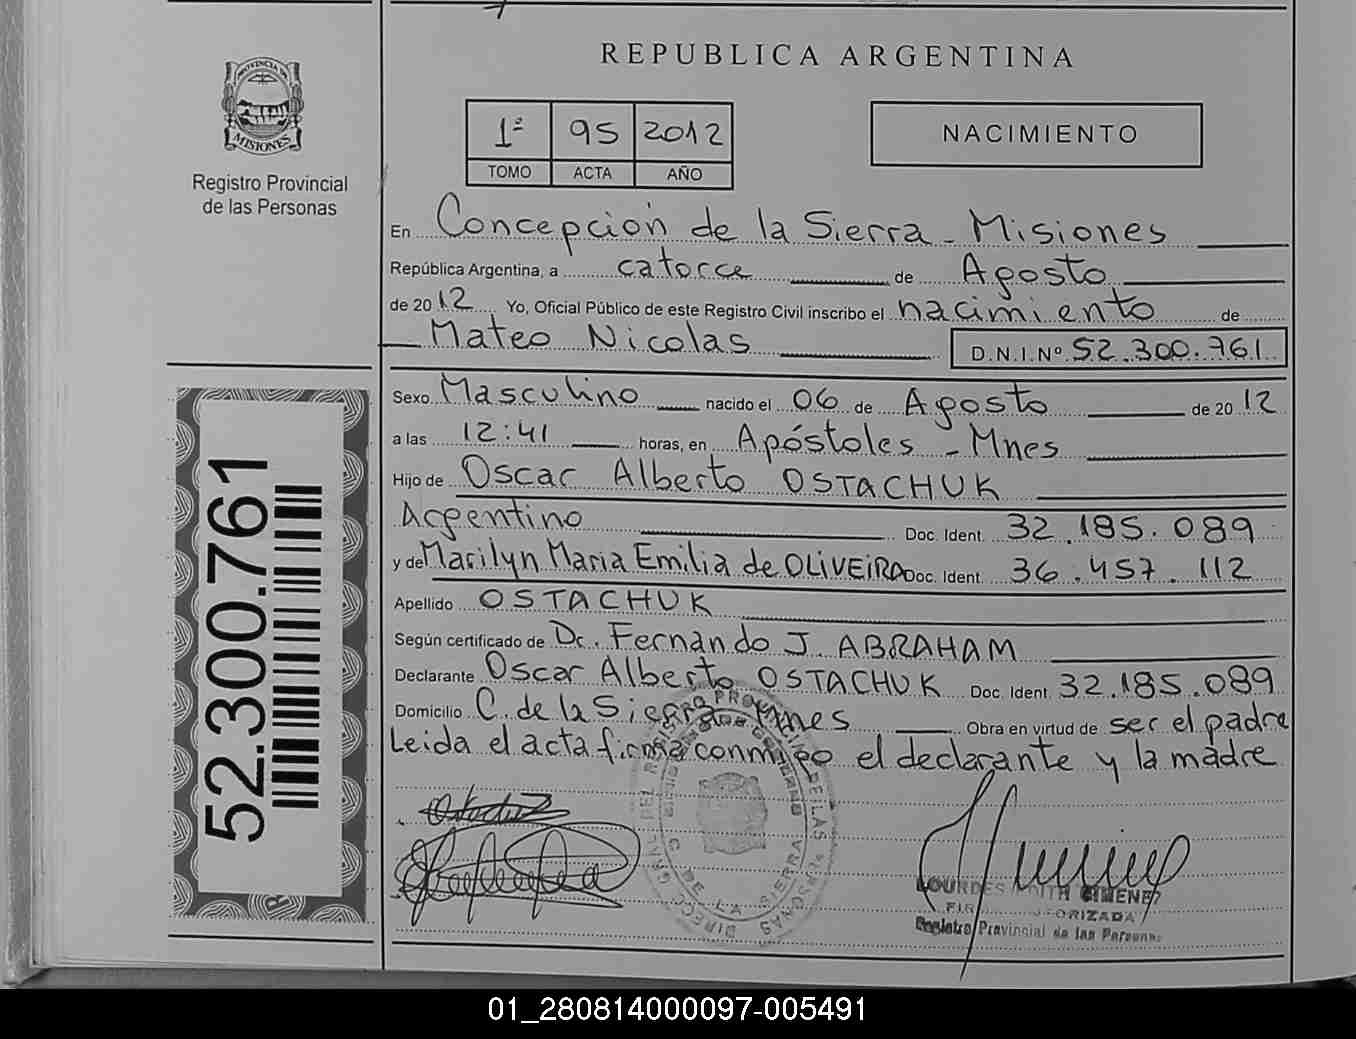 REPUBLICA ARGENTINA
PROVINCIA DE
MISIONES
Registro Provincial
de las Personas
1º 95 2012
TOMO ACTA AÑO
NACIMIENTO
En Concepción de la Sierra - Misiones
República Argentina, a catorce de Agosto
de 2012 Yo, Oficial Público de este Registro Civil inscribo el nacimiento de
Mateo Nicolas D.N.I.Nº 52.300.761
Sexo Masculino nacido el 06 de Agosto de 2012
a las 12:41 horas, en Apóstoles - Mnes
Hijo de Oscar Alberto OSTACHUK
Argentino Doc. Ident. 32.185.089
y de Marilyn Maria Emilia de OLIVEIRA Doc. Ident. 36.457.112
Apellido OSTACHUK
Según certificado de Dr. Fernando J. ABRAHAM
Declarante Oscar Alberto OSTACHUK Doc. Ident. 32.185.089
Domicilio C. de la Sierra - Mnes Obra en virtud de ser el padre
Leida el acta firma conmigo el declarante y la madre
52.300.761
LOURDES GIMENEZ
AUTORIZADA
Registro Provincial de las Personas
C. DE LA SIERRA
01_280814000097-005491